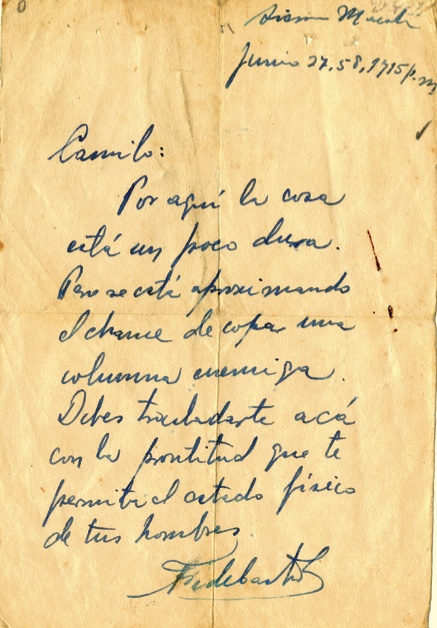 Sierra Maestra
Junio 27, 58, 1915 p.m
Camilo:
Por aquí la cosa
está un poco dura.
Pero se está aproximando
el chance de copar una
columna enemiga.
Debes trasladarte acá
con la prontitud que te
permita el estado físico
de tus hombres.
Fidel Castro